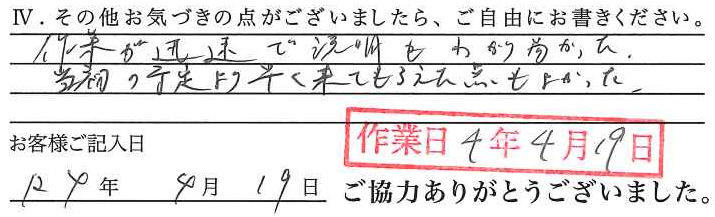 Ⅳ．その他お気づきの点がございましたら、ご自由にお書きください。
作業が迅速で説明もわかり易かった.
当初の予定より早く来てもらえた点もよかった.
お客様ご記入日
作業日 4年 4月 19日
R4年 4月 19日
ご協力ありがとうございました。